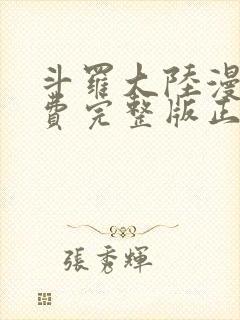 斗羅大陸漫
費完整版正
張秀輝